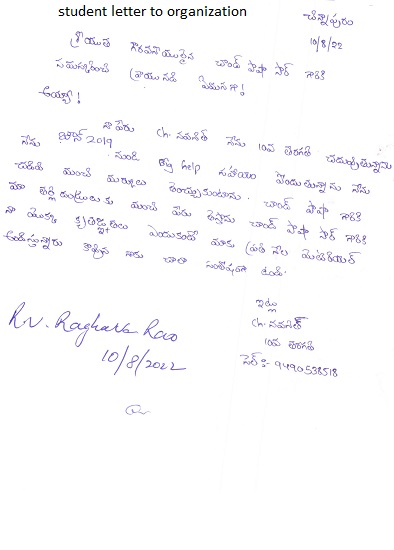 student letter to organization
చిన్నాపురం
10/8/22
శ్రీయుత గౌరవనీయులైన చాంద్ పాషా సార్ గారికి
నమస్కరించి వ్రాయునది ఏమనగా!
అయ్యా!
నా పేరు Ch. నవనీత్ నేను 10వ తరగతి చదువుతున్నాను
నేను జూన్ 2019 నుండి help సహాయం పొందుతున్నాను నేను
చదివి మంచి మార్కులు తెచ్చుకుంటాను. చాంద్ పాషా గారికి
మా తల్లి దండ్రులకు మంచి పేరు తెస్తాను చాంద్ పాషా సార్ గారికి
నా యొక్క కృతజ్ఞతలు ఎందుకంటే మాకు ప్రతి నెల మెటీరియల్
అందిస్తున్నారు కావున నాకు చాలా సంతోషంగా ఉంది.
ఇట్లు
Ch. నవనీత్
10వ తరగతి
సెల్ :- 9490538518
R.V. Raghava Rao
10/8/2022